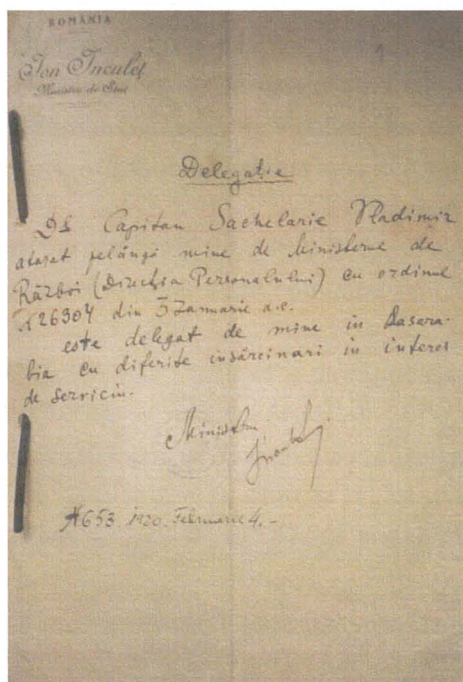 ROMÂNIA
Ion Inculeț
Ministru de Stat
Delegație
Dl Capitan Sachelarie Vladimir
atașat pelângă mine de Ministerul de
Război (Direcția Personalului) cu ordinul
26304 din 3 Ianuarie a.c.
este delegat de mine în Basara-
bia cu diferite însărcinari în interes
de serviciu.
Ministru
Inculeț
653 1920 Februarie 4. -